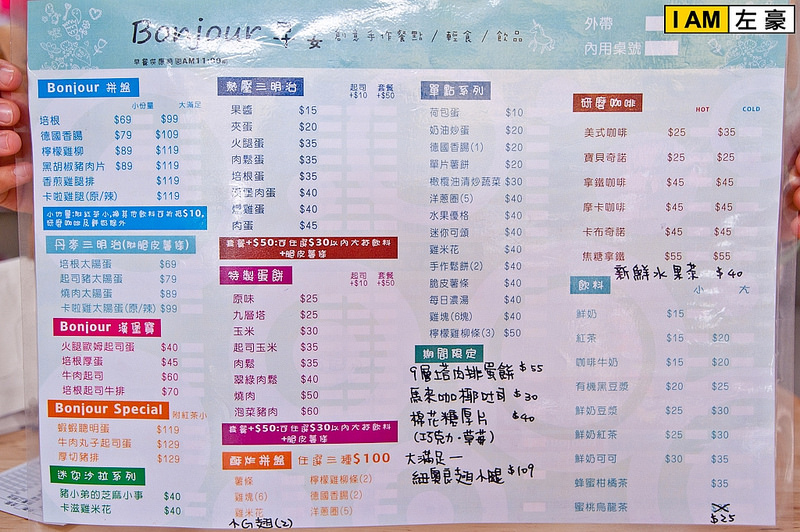 I AM 左豪
Bonjour
創意手作餐點 / 輕食 / 飲品
外帶
內用桌號
早餐供應時間AM11:00前
Bonjour 拼盤
小份量 大滿足
培根 $69 $99
德國香腸 $79 $109
檸檬雞柳 $89 $119
黑胡椒豬肉片 $89 $119
香煎雞腿排 $119
卡啦雞腿(原/辣) $119
丹麥三明治(附脆皮薯條)
培根太陽蛋 $69
起司豬太陽蛋 $79
燒肉太陽蛋 $89
卡啦雞太陽蛋(原/辣) $99
Bonjour 漢堡寶
火腿歐姆起司蛋 $40
培根厚蛋 $45
牛肉起司 $60
培根起司牛排 $70
Bonjour Special 附紅茶小
蝦蝦聰明蛋 $119
牛肉丸子起司蛋 $129
厚切豬排 $129
迷你沙拉系列
豬小弟的芝麻小事 $40
卡滋雞米花 $40
熱壓三明治 起司+$10 套餐+$50
果醬 $15
夾蛋 $20
火腿蛋 $35
肉鬆蛋 $35
培根蛋 $35
漢堡肉蛋 $40
燻雞蛋 $40
肉蛋 $45
套餐+$50:可任選$30以內大杯飲料
+脆皮薯條
特製蛋餅 起司+$10 套餐+$50
原味 $25
九層塔 $25
玉米 $30
起司玉米 $35
肉鬆 $35
翠綠肉鬆 $40
燒肉 $50
泡菜豬肉 $60
套餐+$50:可任選$30以內大杯飲料
+脆皮薯條
酥炸拼盤 任選三種$100
薯條 檸檬雞柳條(2)
雞塊(6) 德國香腸(2)
雞米花 洋蔥圈(5)
小G翅(2)
單點系列
荷包蛋 $10
奶油炒蛋 $20
德國香腸(1) $20
單片薯餅 $20
橄欖油清炒蔬菜 $30
洋蔥圈(5) $40
水果優格 $40
迷你可頌 $40
雞米花 $40
手作鬆餅(2) $40
脆皮薯條 $40
每日濃湯 $40
雞塊(6塊) $40
檸檬雞柳條(3) $50
期間限定
9層塔肉排蛋餅 $55
馬來咖椰吐司 $30
棉花糖厚片 $40
(巧克力·草莓)
大滿足—
紐奧良翅小腿 $109
研磨咖啡 HOT COLD
美式咖啡 $25 $35
寶貝奇諾 $25 $25
拿鐵咖啡 $45 $45
摩卡咖啡 $45 $45
卡布奇諾 $45 $45
焦糖拿鐵 $55 $55
新鮮水果茶 $40
飲料 小 大
鮮奶 $15
紅茶 $15 $20
咖啡牛奶 $15 $20
有機黑豆漿 $20 $25
鮮奶豆漿 $25 $30
鮮奶紅茶 $25 $30
鮮奶可可 $30 $35
蜂蜜柑橘茶 $35
蜜桃烏龍茶 $25